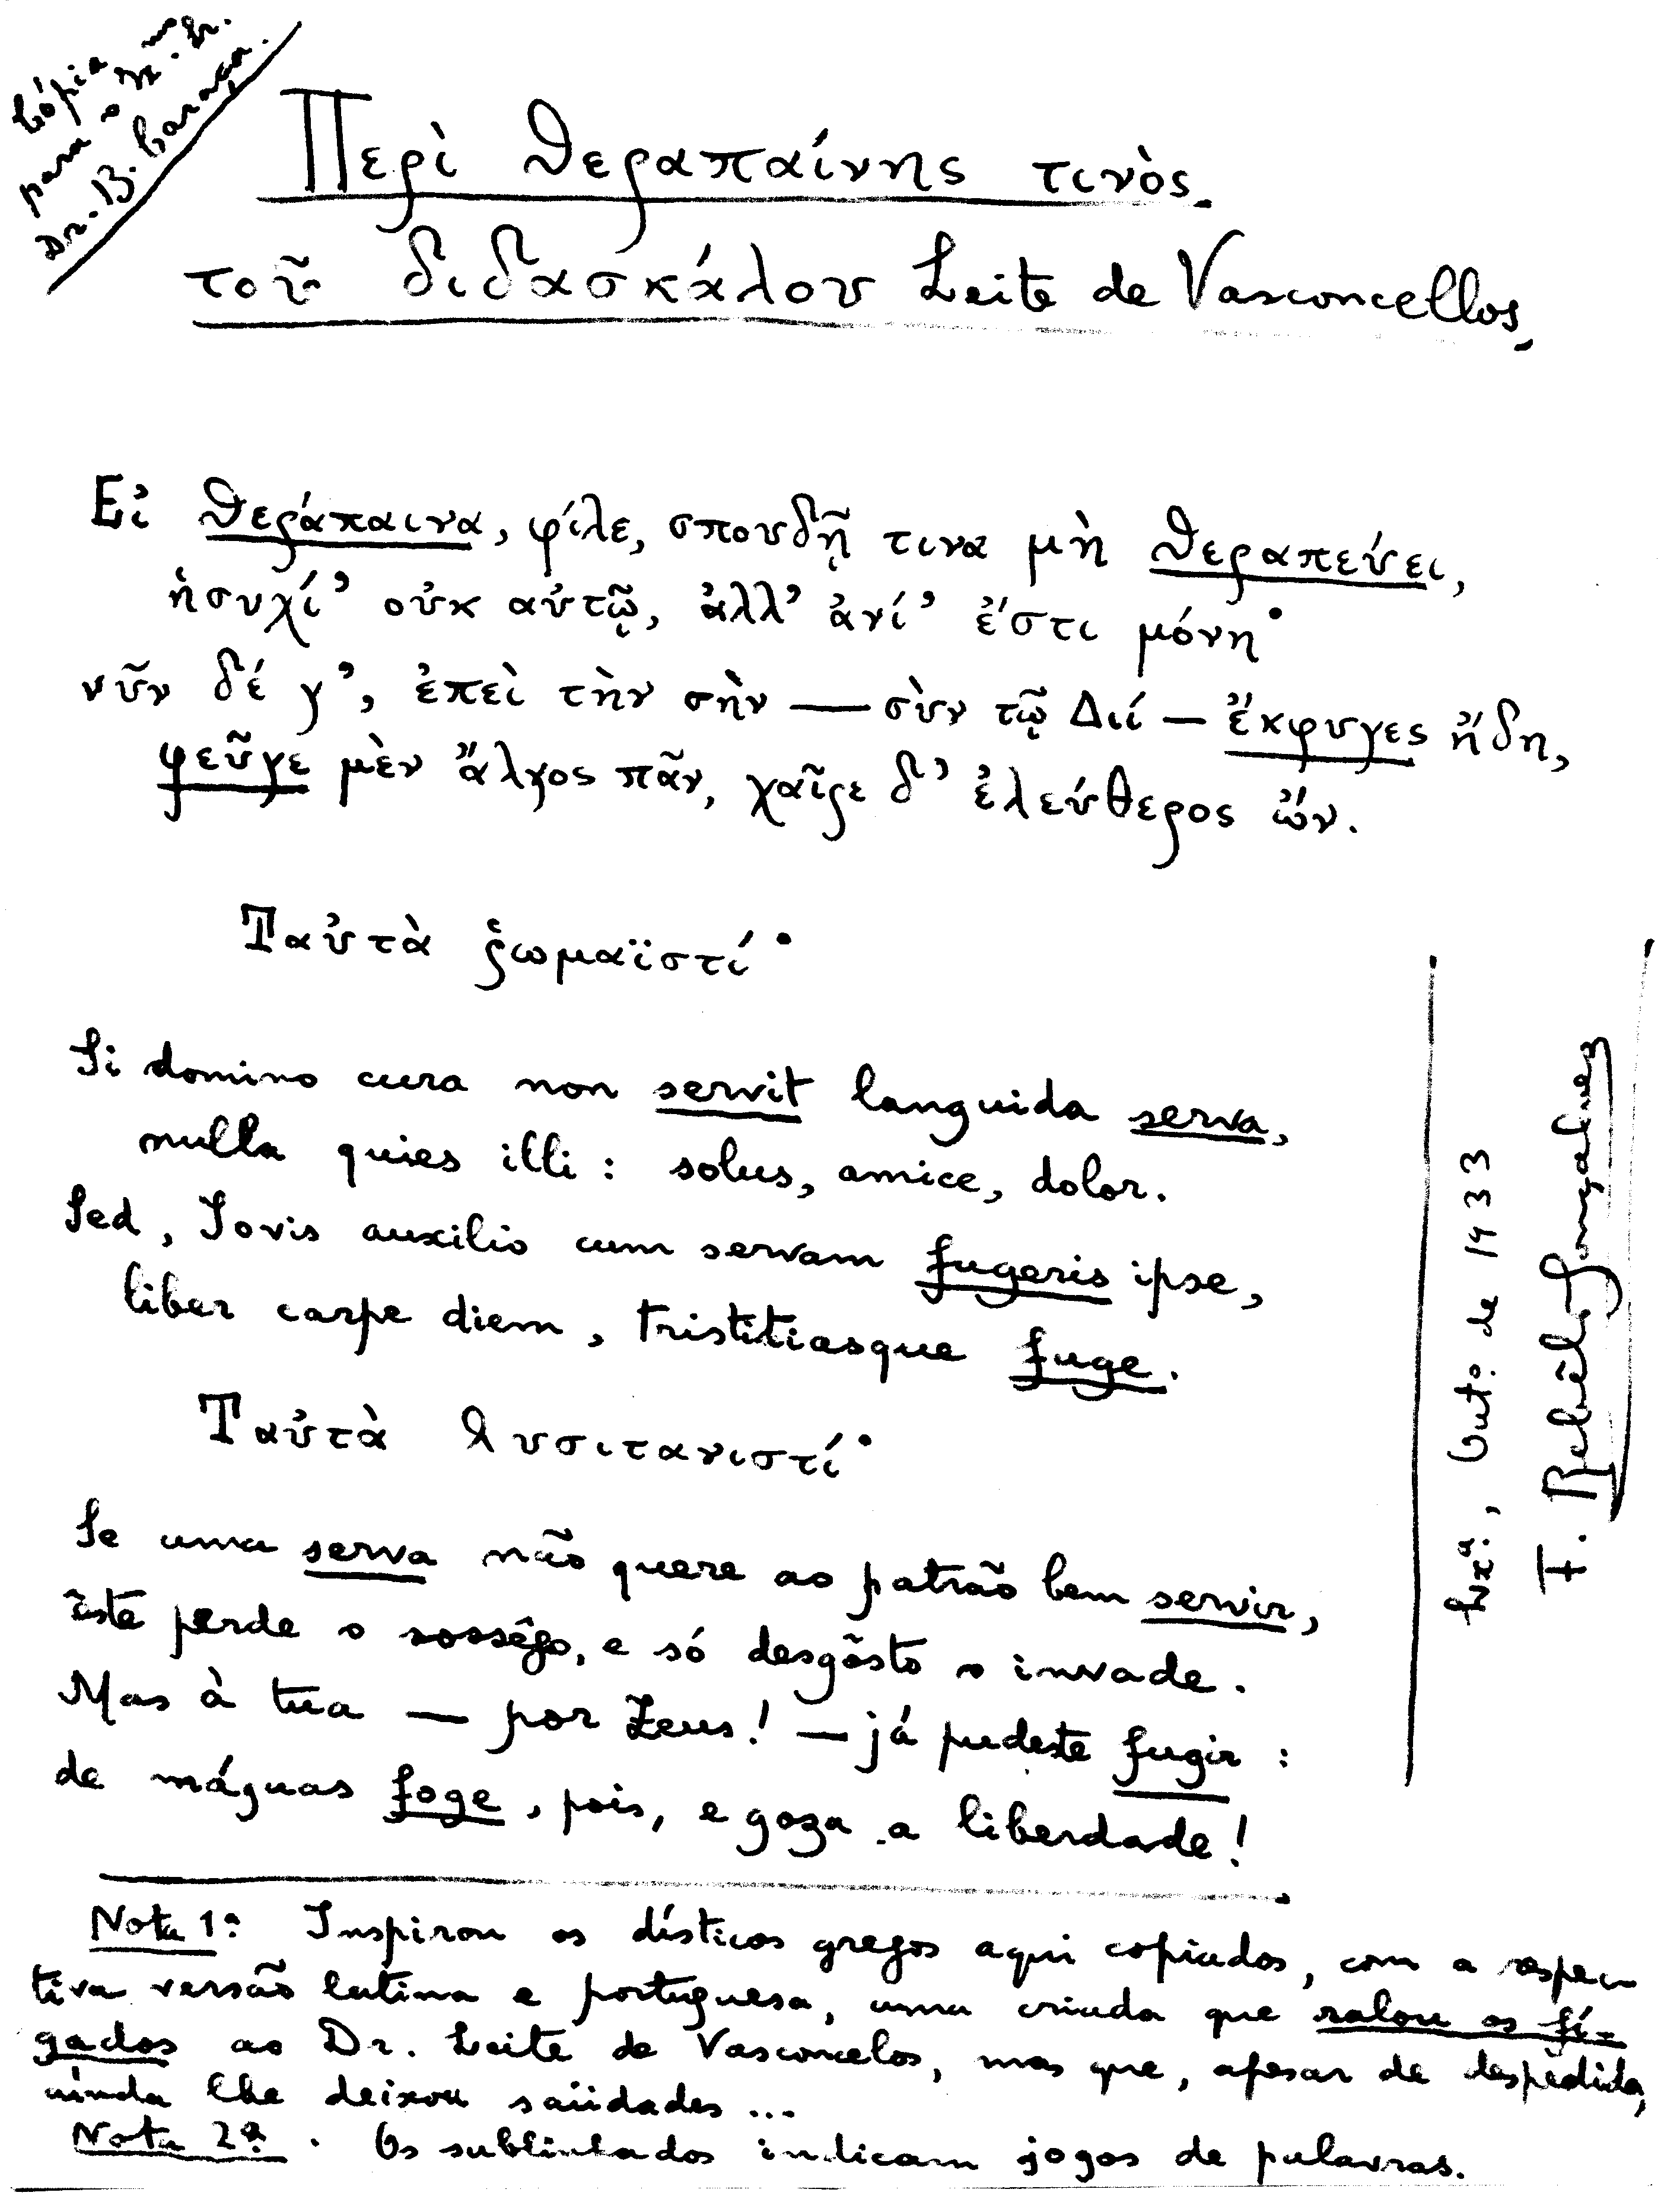 Cópia
para o Ex.mo Sr.
Dr. B. Caraça.
Περὶ θεραπαίνης τινὸς
τοῦ διδασκάλου Leite de Vasconcellos
Εἰ θεράπαινα, φίλε, σπουδῇ τινα μὴ θεραπεύει,
ἡσυχί’ οὐκ αὐτῷ, ἀλλ’ ἀνί’ ἔστι μόνη·
νῦν δέ γ’, ἐπεὶ τὴν σὴν — σὺν τῷ Διί — ἔκφυγες ἤδη,
φεῦγε μὲν ἄλγος πᾶν, χαῖρε δ’ ἐλεύθερος ὤν.
Ταὐτὰ ῥωμαϊστί·
Si domino cura non servit languida serva,
nulla quies illi: solus, amice, dolor.
Sed, Iovis auxilio cum servam fugeris ipse,
liber carpe diem, tristitiasque fuge.
Ταὐτὰ λυσιτανιστί·
Se uma serva não quere ao patrão bem servir,
êste perde o sossêgo, e só desgôsto o invade.
Mas à tua — por Zeus! — já pudeste fugir:
de máguas foge, pois, e goza a liberdade!
Lxª., Outº. de 1933
F. Rebêlo Gonçalves
Nota 1ª. Inspirou os dísticos gregos aqui copiados, com a respec
tiva versão latina e portuguesa, uma criada que ralou os fí-
gados ao Dr. Leite de Vasconcelos, mas que, apesar de despedida,
ainda lhe deixou saüdades ...
Nota 2ª. Os sublinhados indicam jogos de palavras.